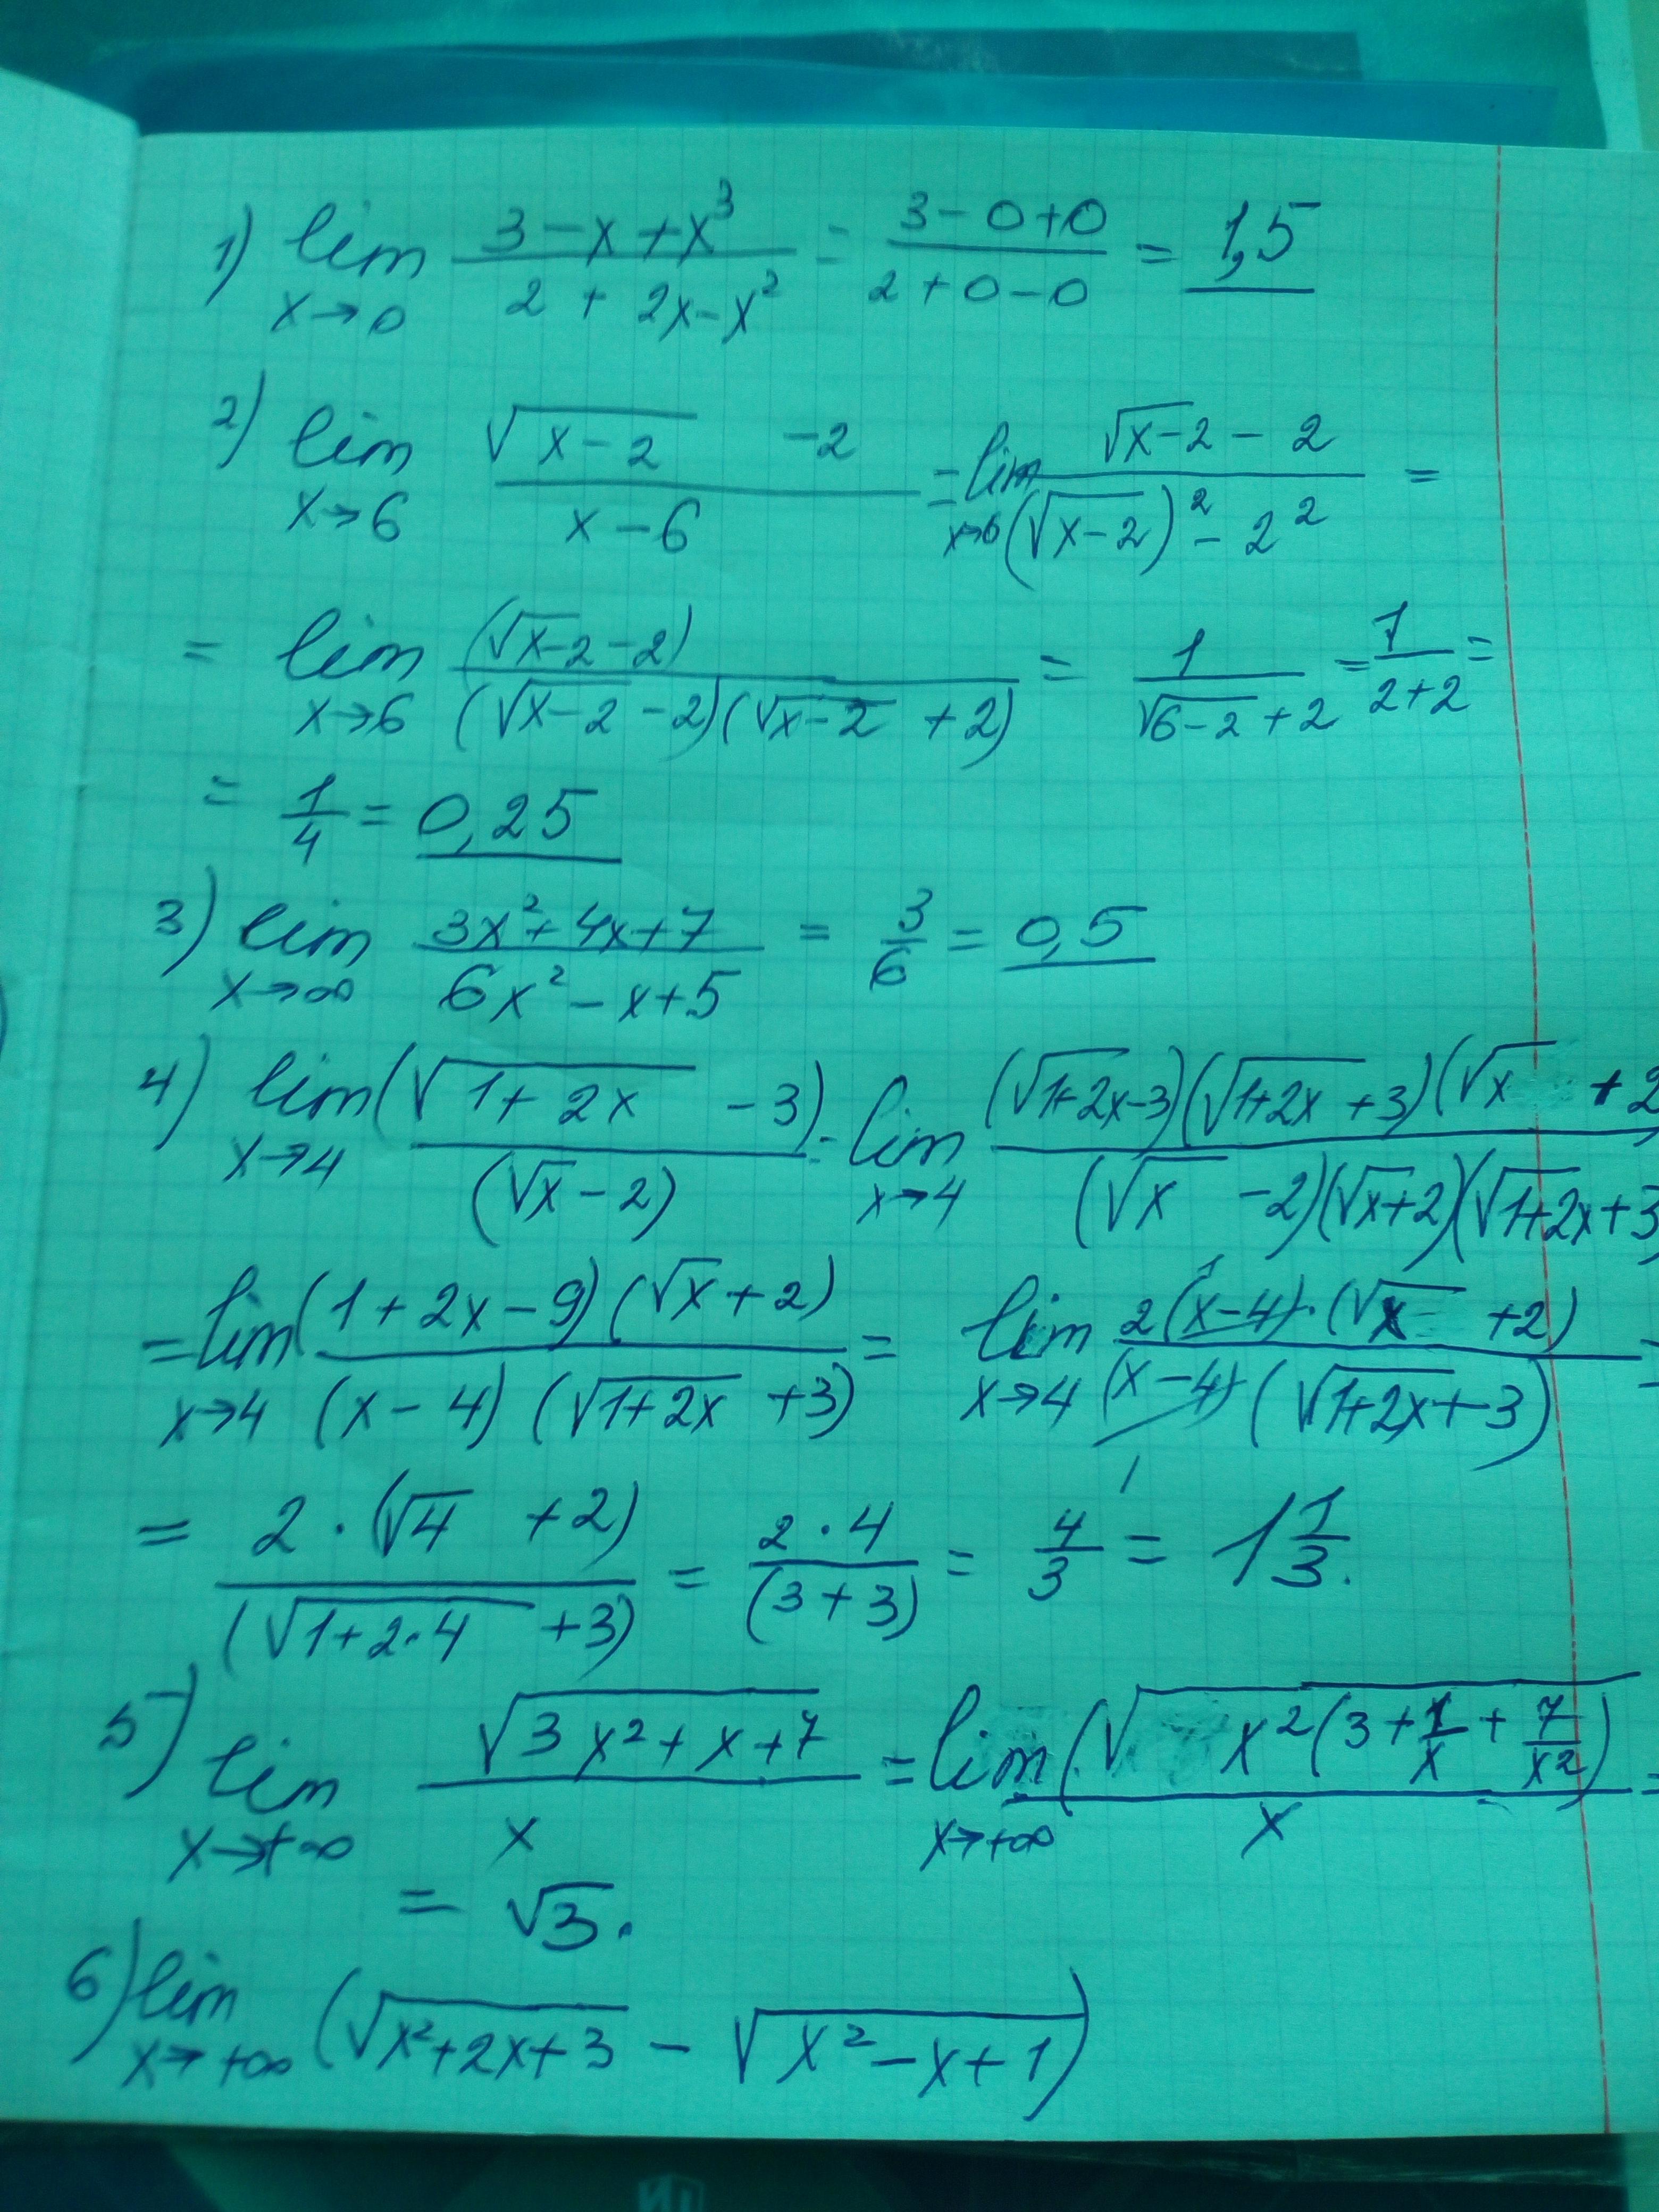 1) lim x→0 (3-x+x³)/(2+2x-x²) = (3-0+0)/(2+0-0) = 1,5
2) lim x→6 (√(x-2) -2)/(x-6) = lim x→6 (√(x-2) - 2)/((√(x-2))² - 2²) =
= lim x→6 (√(x-2) -2)/((√(x-2) -2)(√(x-2) +2)) = 1/(√(6-2)+2) = 1/(2+2) =
= 1/4 = 0,25
3) lim x→∞ (3x²+4x+7)/(6x²-x+5) = 3/6 = 0,5
4) lim x→4 (√(1+2x) -3)/(√x -2) = lim x→4 (√(1+2x) -3)(√(1+2x) +3)(√x +2/(√x -2)(√x+2)(√(1+2x)+3)
= lim x→4 (1+2x-9)(√x+2)/(x-4)(√(1+2x) +3) = lim x→4 2(x-4)·(√x +2)/(x-4)(√(1+2x)+3) =
= 2·(√4 +2)/(√(1+2·4) +3) = 2·4/(3+3) = 4/3 = 1 1/3.
5) lim x→+∞ √(3x²+x+7)/x = lim x→+∞ (√(x²(3+1/x+7/x²))/x =
= √3.
6) lim x→+∞ (√(x²+2x+3) - √(x²-x+1))
ИП